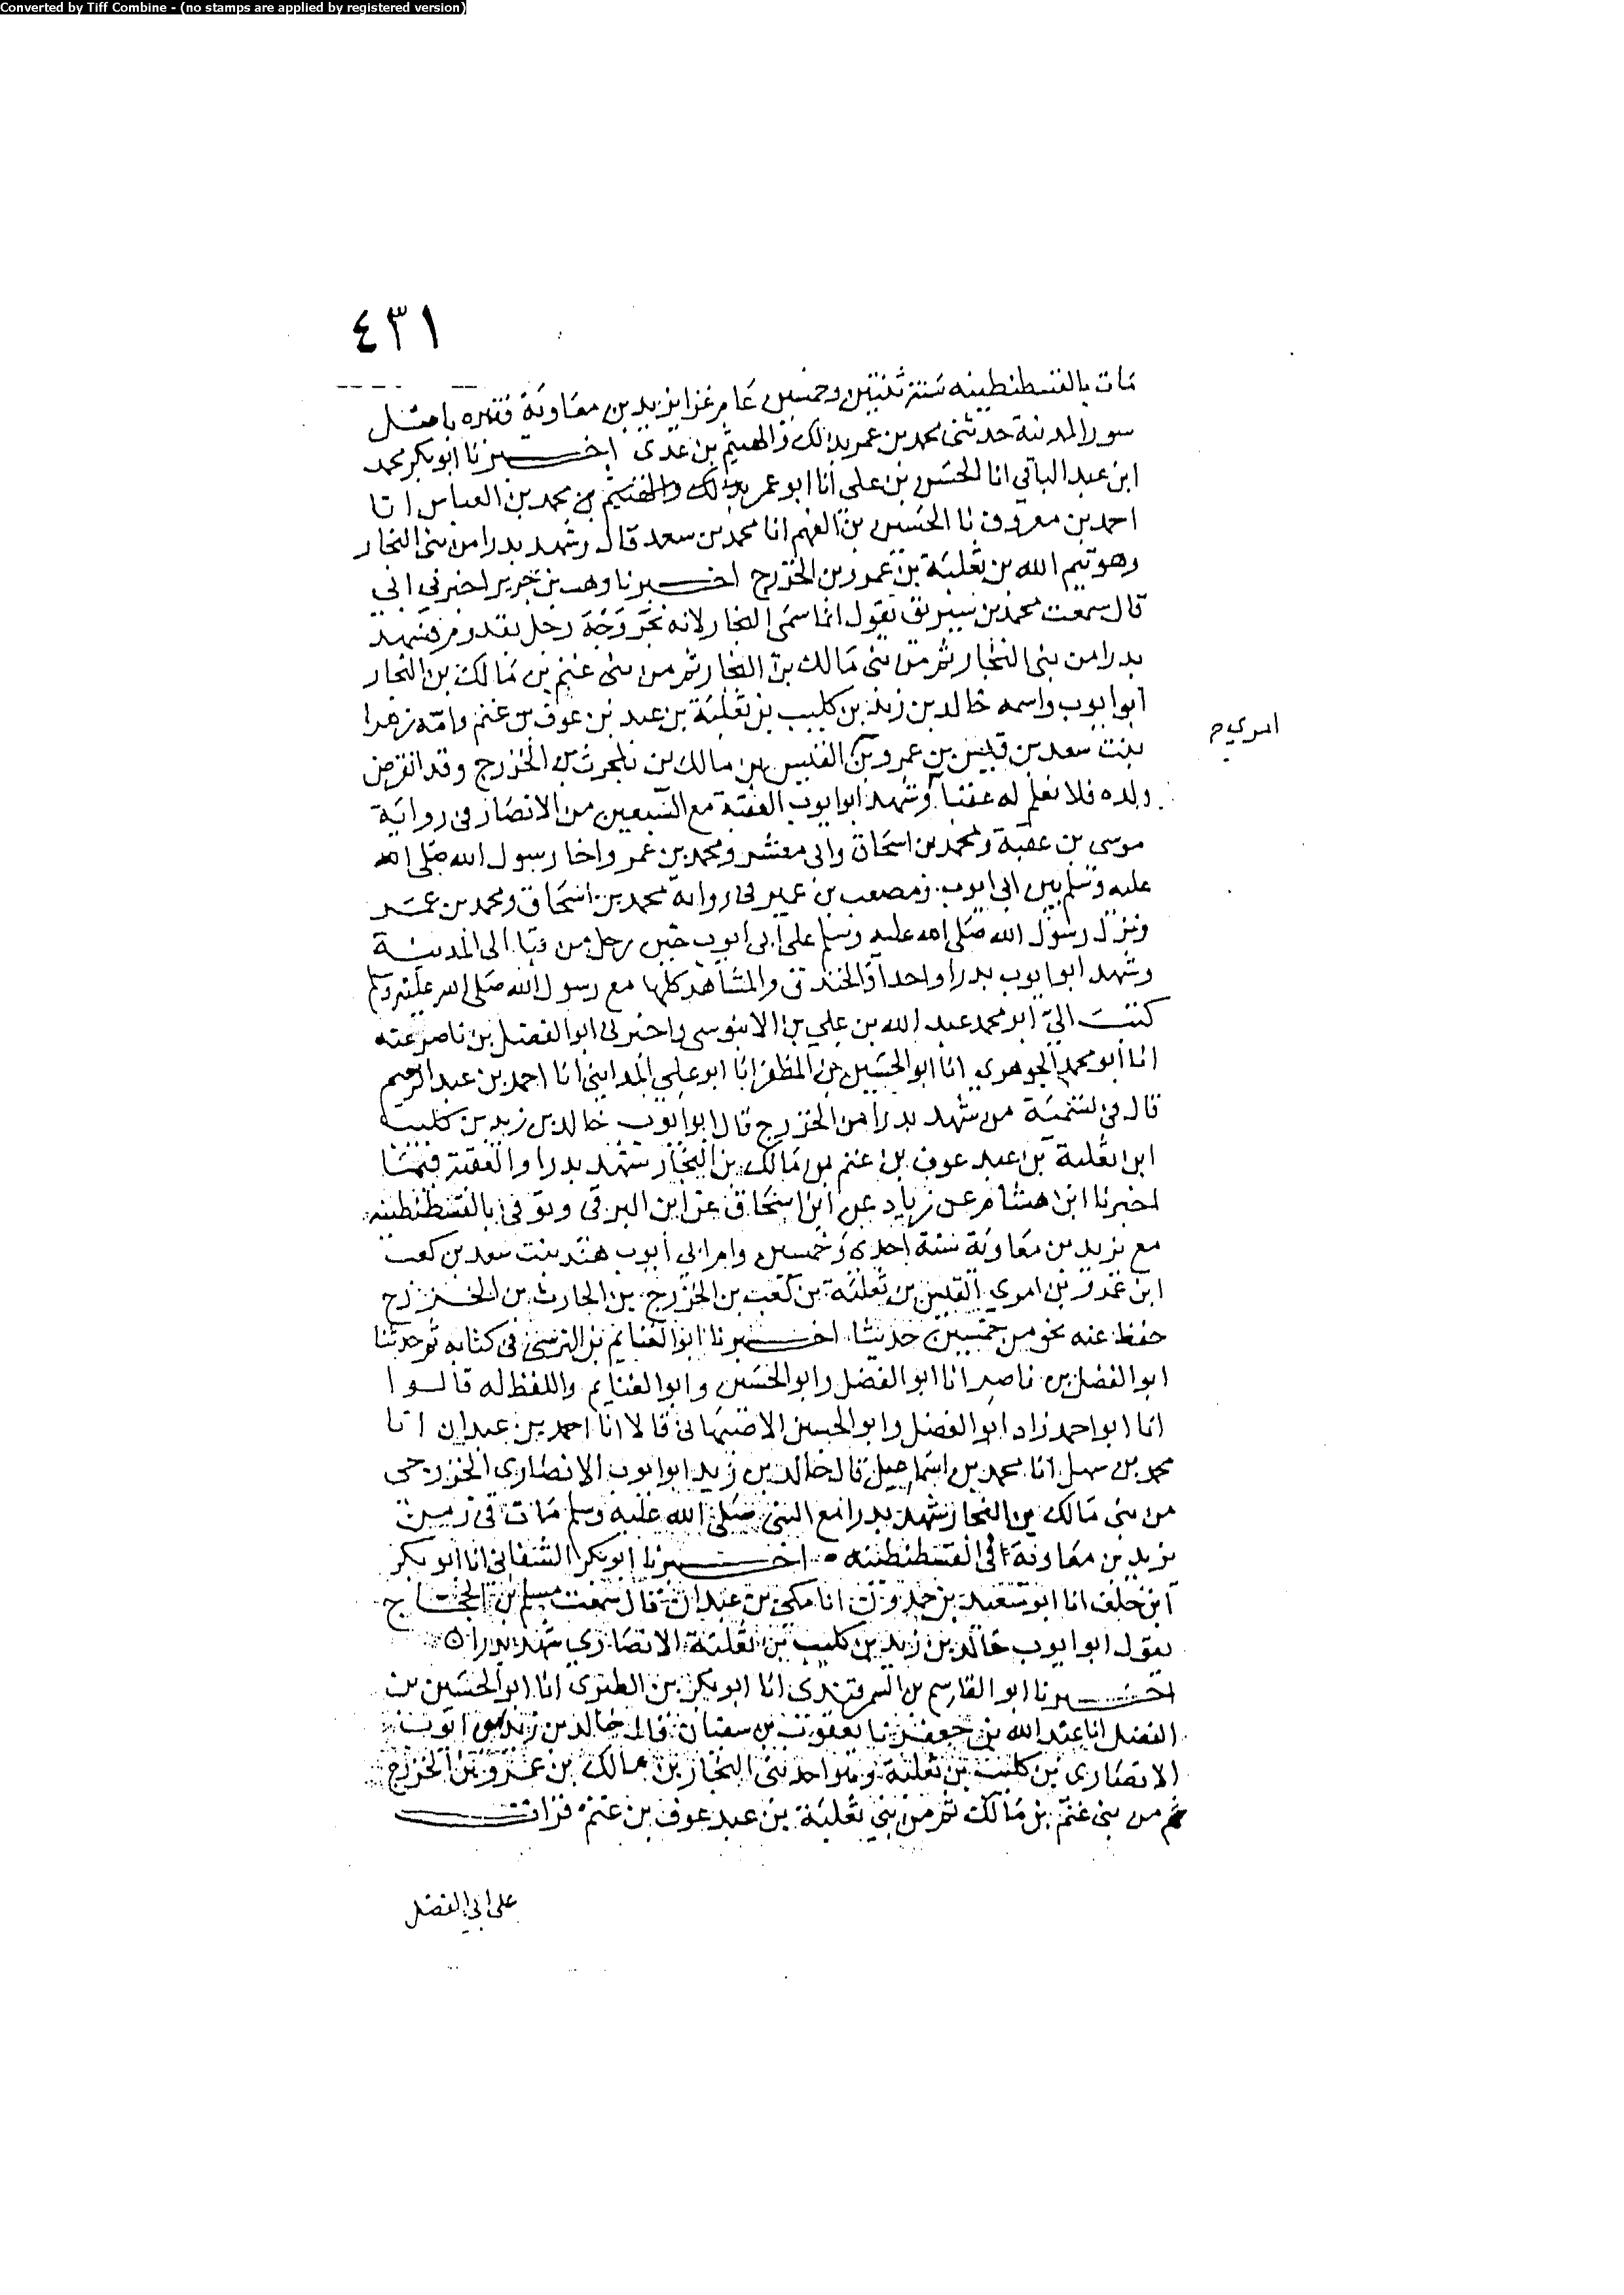 Converted by Tiff Combine - (no stamps are applied by registered version)
٤٣١
مات بالقسطنطينيه سنة ثنتين وخمسين عام غزا يزيد بن معاوية فقبره باصل
سور المدينة حدثنى محمد بن عمر بذلك والهيثم بن عدى اخبرنا ابو بكر محمد
ابن عبد الباقي انا الحسن بن على انا ابو عمر بذلك والهيثم بن محمد بن العباس انا
احمد بن معروف نا الحسين بن الفهم انا محمد بن سعد قال وشهد بدرا من بنى النجار
وهو تيم الله بن ثعلبة بن عمرو بن الخزرج اخبرنا وهب بن جرير اخبرني ابي
قال سمعت محمد بن سيرين يقول انما سمى النجار لانه نجر وجه رجل بقدوم فشهد
بدرا من بنى النجار ثم من بنى مالك بن النجار ثم من بنى غنم بن مالك بن النجار
ابو ايوب واسمه خالد بن زيد بن كليب بن ثعلبة بن عبد بن عوف بن غنم وامه زهرا
بنت سعد بن قيس بن عمرو بن القيس بن مالك بن بلحرث بن الخزرج وقد انقرض
امرى م
ولده فلا نعلم له عقبا وشهد ابو ايوب العقبة مع السبعين من الانصار فى رواية
موسى بن عقبة ومحمد بن اسحاق وابى معشر ومحمد بن عمر واخا رسول الله صلى الله
عليه وسلم بين ابى ايوب ومصعب بن عمير فى رواية محمد بن اسحاق ومحمد بن عمر
ونزل رسول الله صلى الله عليه وسلم على ابى ايوب حين رحل من قبا الى المدينة
وشهد ابو ايوب بدرا واحدا والخندق والمشاهد كلها مع رسول الله صلى الله عليه وسلم
كتب الي ابو محمد عبد الله بن علي بن الابنوسى واخبرنى ابو الفضل بن ناصر عنه
انا ابو محمد الجوهري انا ابو الحسين بن المظفر انا ابو علي المداينى انا احمد بن عبد الرحيم
قال فى تسمية من شهد بدرا من الخزرج قال ابو ايوب خالد بن زيد بن كليب
ابن ثعلبة بن عبد عوف بن غنم بن مالك بن النجار شهد بدرا والعقبة فيما
اخبرنا ابن هشام عن زياد عن ابن اسحاق عن ابن البرقى وتوفى بالقسطنطينيه
مع يزيد بن معاوية سنة احدى وخمسين وام ابى ايوب هند بنت سعد بن كعب
ابن عمرو بن امرى القيس بن ثعلبة بن كعب بن الخزرج بن الحارث بن الخزرج
حفظ عنه نحو من خمسين حديثا اخبرنا ابو الغنايم بن النرسى فى كتابه ثم حدثنا
ابو الفضل بن ناصر انا ابو الفضل وابو الحسين وابو الغنايم واللفظ له قالوا
انا ابو احمد زاد ابو الفضل وابو الحسين الاصبهانى قالا انا احمد بن عبدان انا
محمد بن سهل انا محمد بن اسماعيل قال خالد بن زيد ابو ايوب الانصاري الخزرجى
من بنى مالك بن النجار شهد بدرا مع النبى صلى الله عليه وسلم مات فى زمن
يزيد بن معاوية فى القسطنطينيه اخبرنا ابو بكر الشقانى انا ابو بكر
ابن خلف انا ابو سعيد بن حمدون انا مكى بن عبدان قال سمعت مسلم بن الحجاج
يقول ابو ايوب خالد بن زيد بن كليب بن ثعلبة الانصاري شهد بدرا
اخبرنا ابو القاسم بن السمرقندى انا ابو بكر بن الطبرى انا ابو الحسين بن
الفضل انا عبد الله بن جعفر نا يعقوب بن سفيان قال خالد بن زيد ابو ايوب
الانصارى بن كليب بن ثعلبة وهو احد بنى النجار بن مالك بن عمرو بن الخزرج
ثم من بنى غنم بن مالك ثم من بنى ثعلبة بن عبد عوف بن غنم قرات
على ابي الفضل